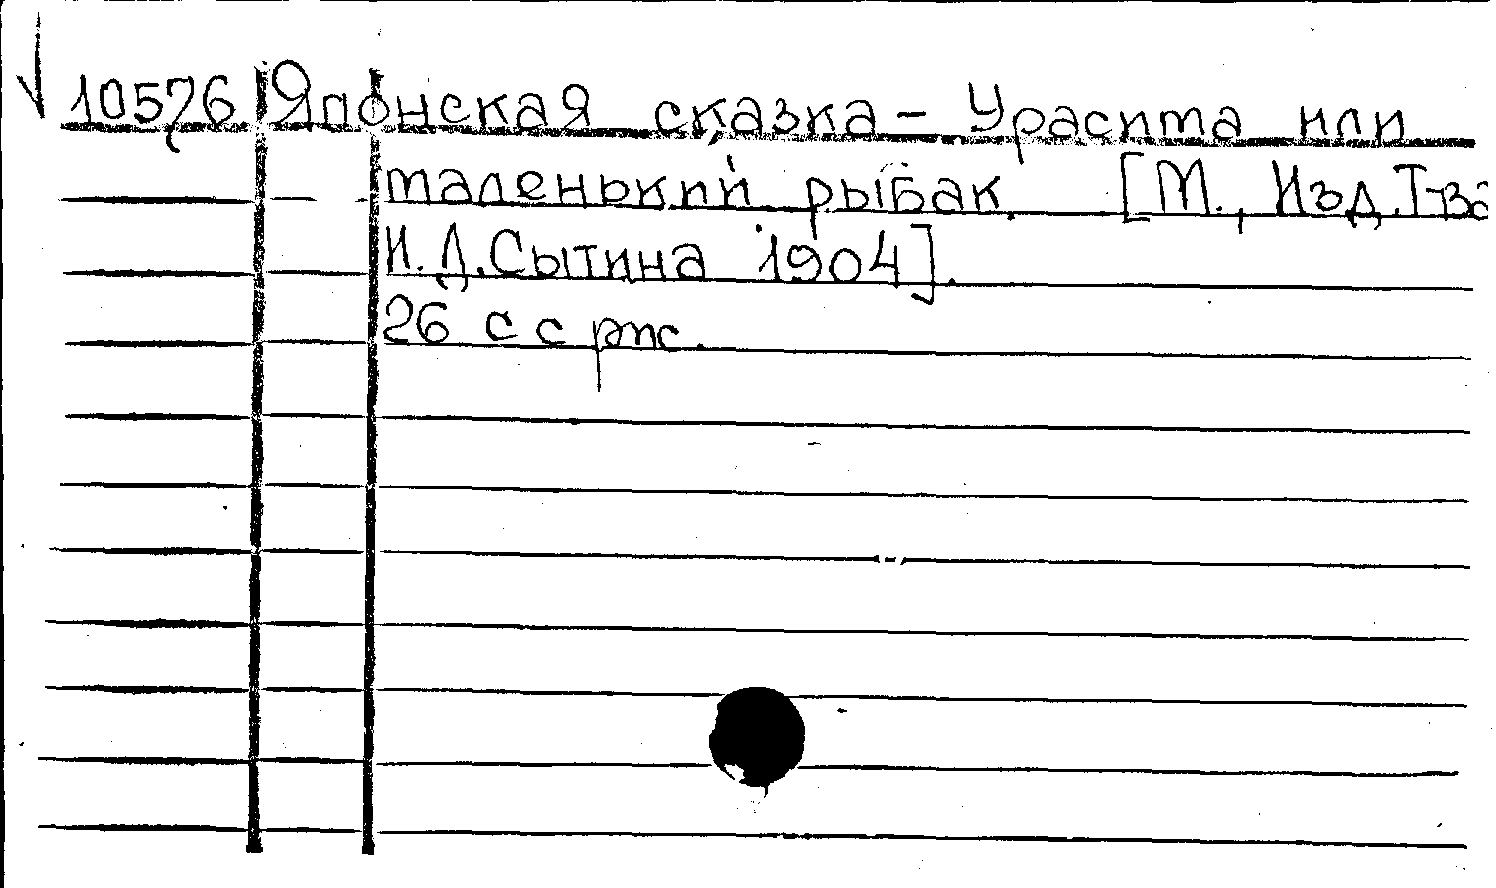 10576 Японская сказка – Урасита или
маленький рыбак. [М., Изд. Т-ва
И. Д. Сытина 1904].
26 с с рис.